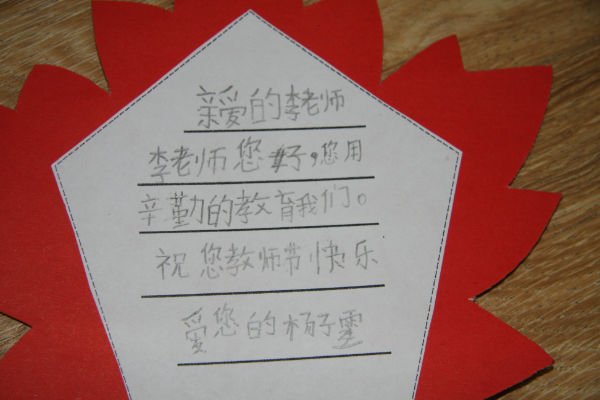 亲爱的李老师
李老师您好,您用
辛勤的教育我们。
祝您教师节快乐
爱您的杨子雯